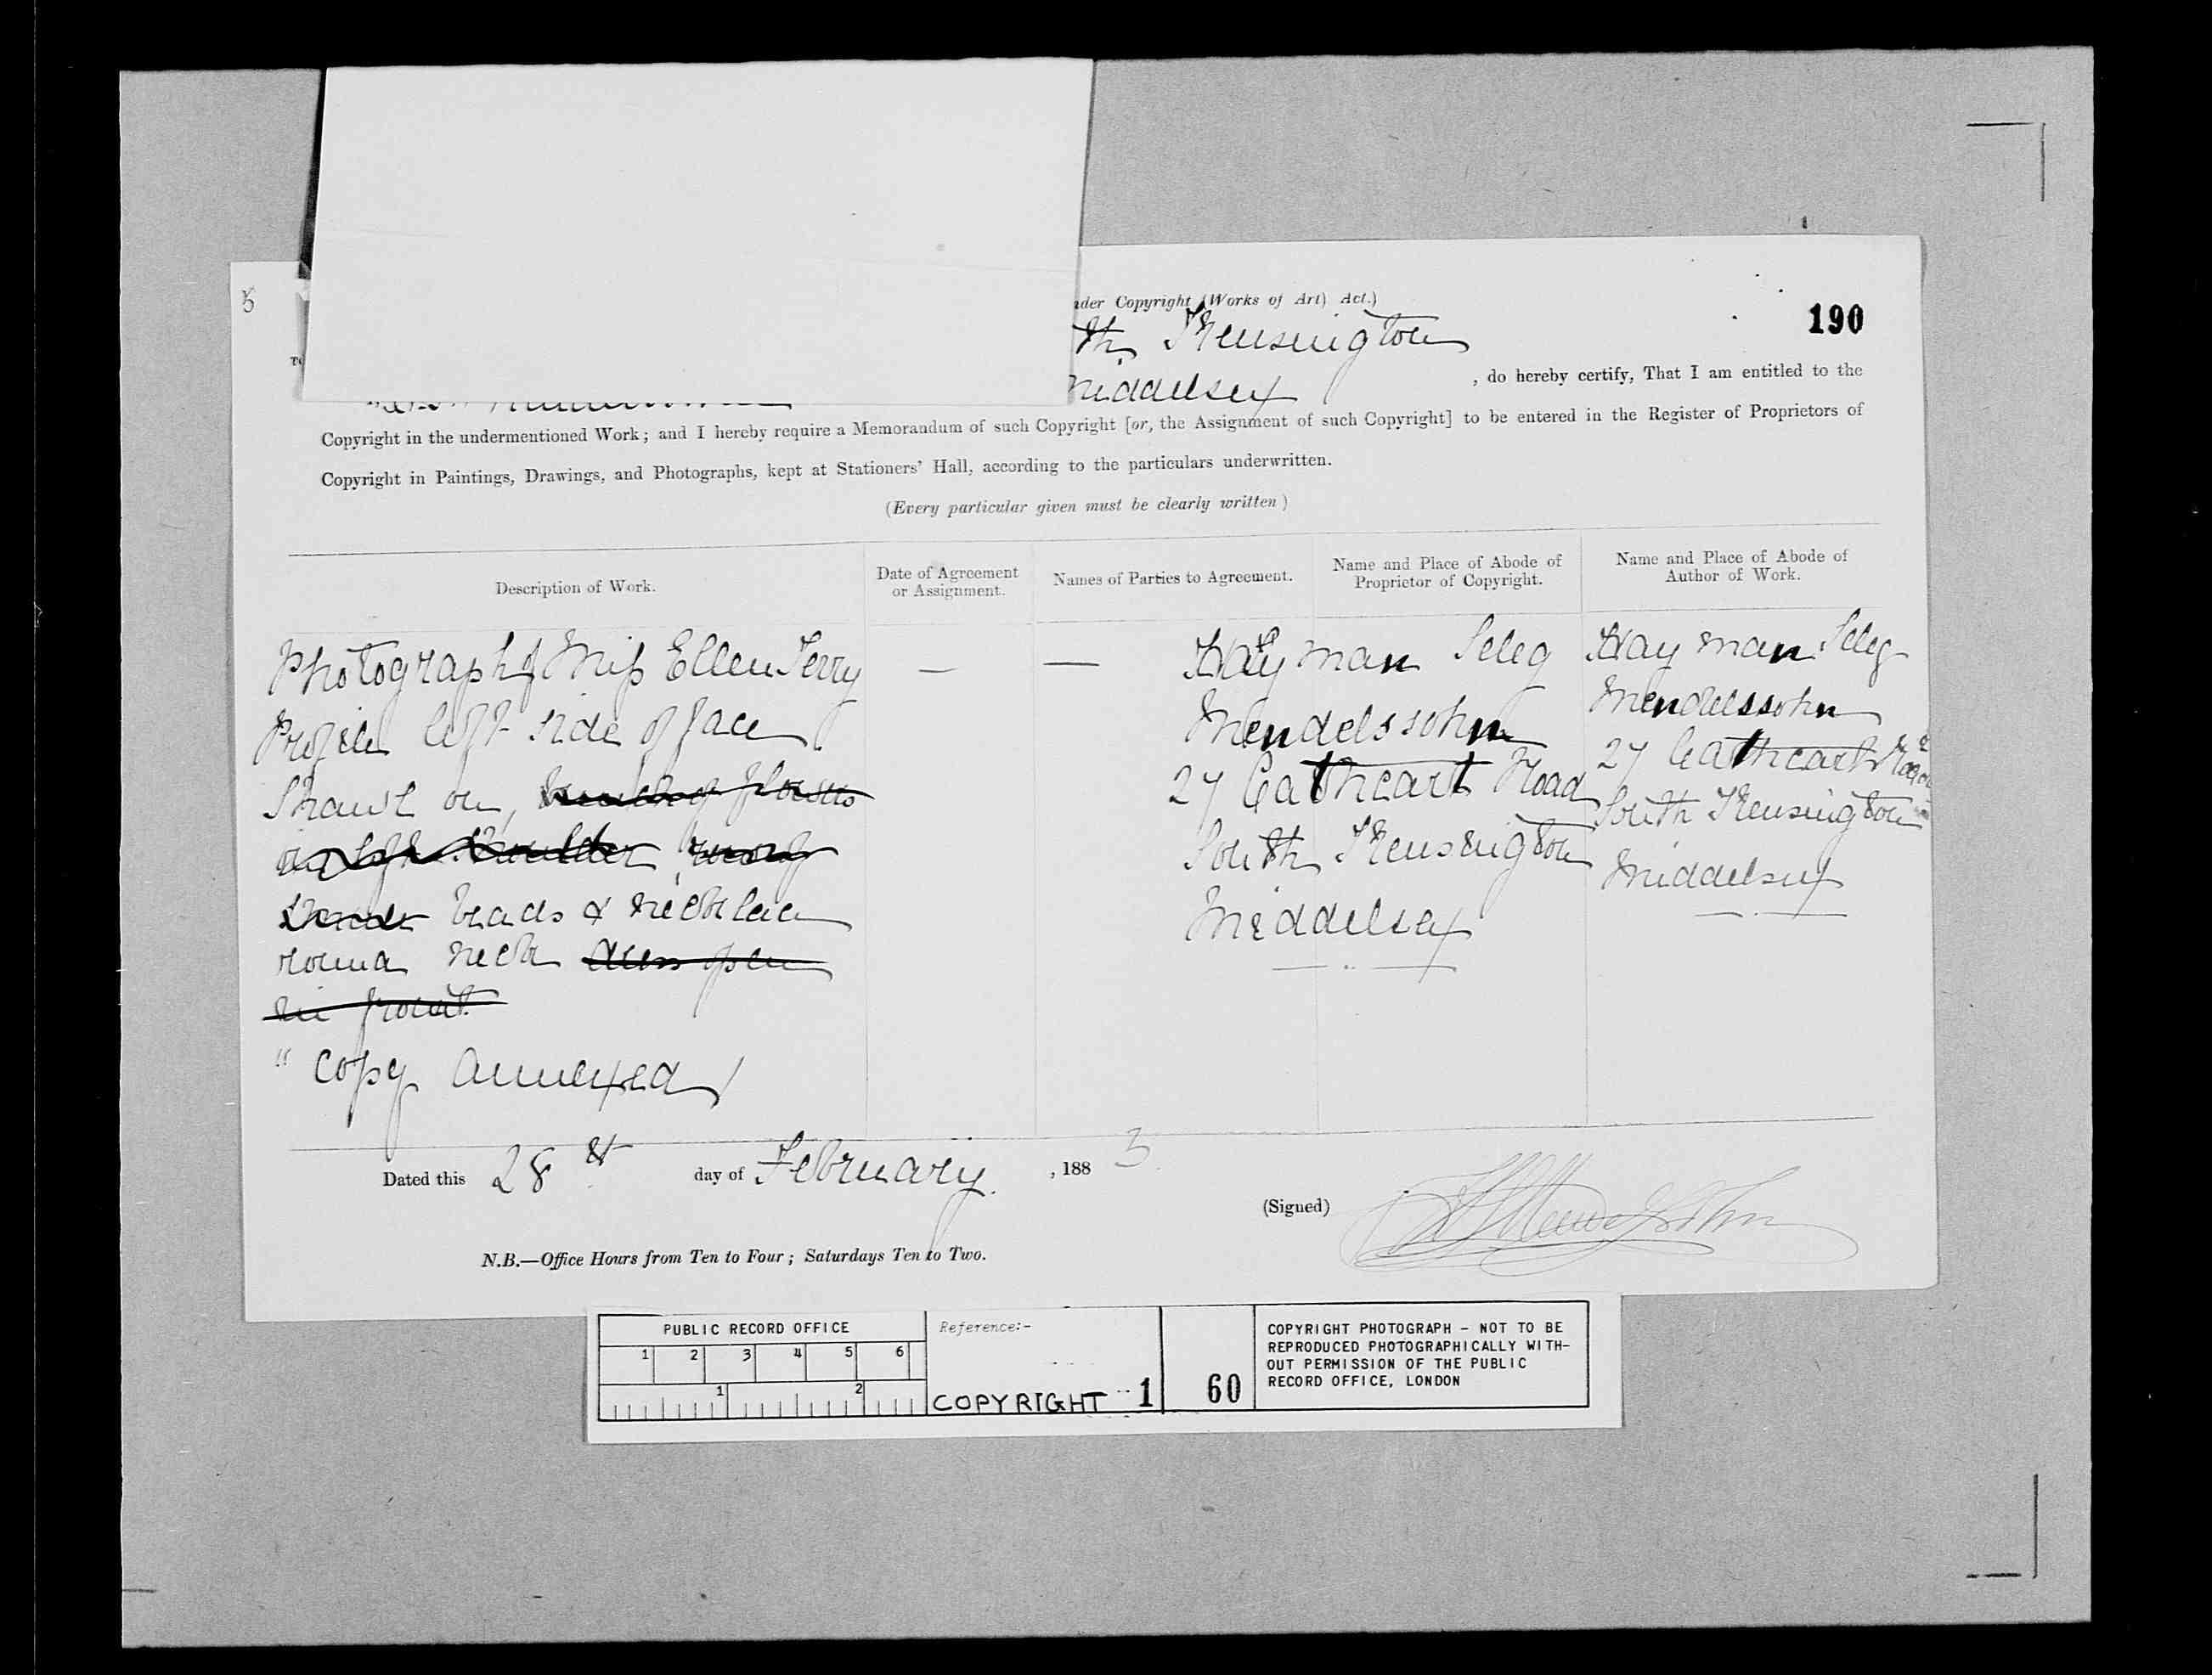 5
190
Copyright (Works of Art) Act.)
th Kensington
Middelsex , do hereby certify, That I am entitled to the
Copyright in the undermentioned Work; and I hereby require a Memorandum of such Copyright [or, the Assignment of such Copyright] to be entered in the Register of Proprietors of
Copyright in Paintings, Drawings, and Photographs, kept at Stationers' Hall, according to the particulars underwritten.
(Every particular given must be clearly written)
Description of Work.
Date of Agreement
or Assignment.
Names of Parties to Agreement.
Name and Place of Abode of
Proprietor of Copyright.
Name and Place of Abode of
Author of Work.
Photograph of Miss Ellen Terry
Profile left side of face
Shawl on, bunch of flowers
on left shoulder,
beads & necklace
round neck dress open
in front
" Copy annexed
—
—
Hayman Seleg
Mendelssohn
27 Cathcart Road
South Kensington
Middelsex
Hayman Seleg
Mendelssohn
27 Cathcart Road
South Kensington
Middelsex
Dated this 28 day of February , 188 3
(Signed) H S Mendelssohn
N.B.—Office Hours from Ten to Four; Saturdays Ten to Two.
PUBLIC RECORD OFFICE
1 2 3 4 5 6
1 2
Reference:-
COPYRIGHT 1 60
COPYRIGHT PHOTOGRAPH - NOT TO BE
REPRODUCED PHOTOGRAPHICALLY WITH-
OUT PERMISSION OF THE PUBLIC
RECORD OFFICE, LONDON